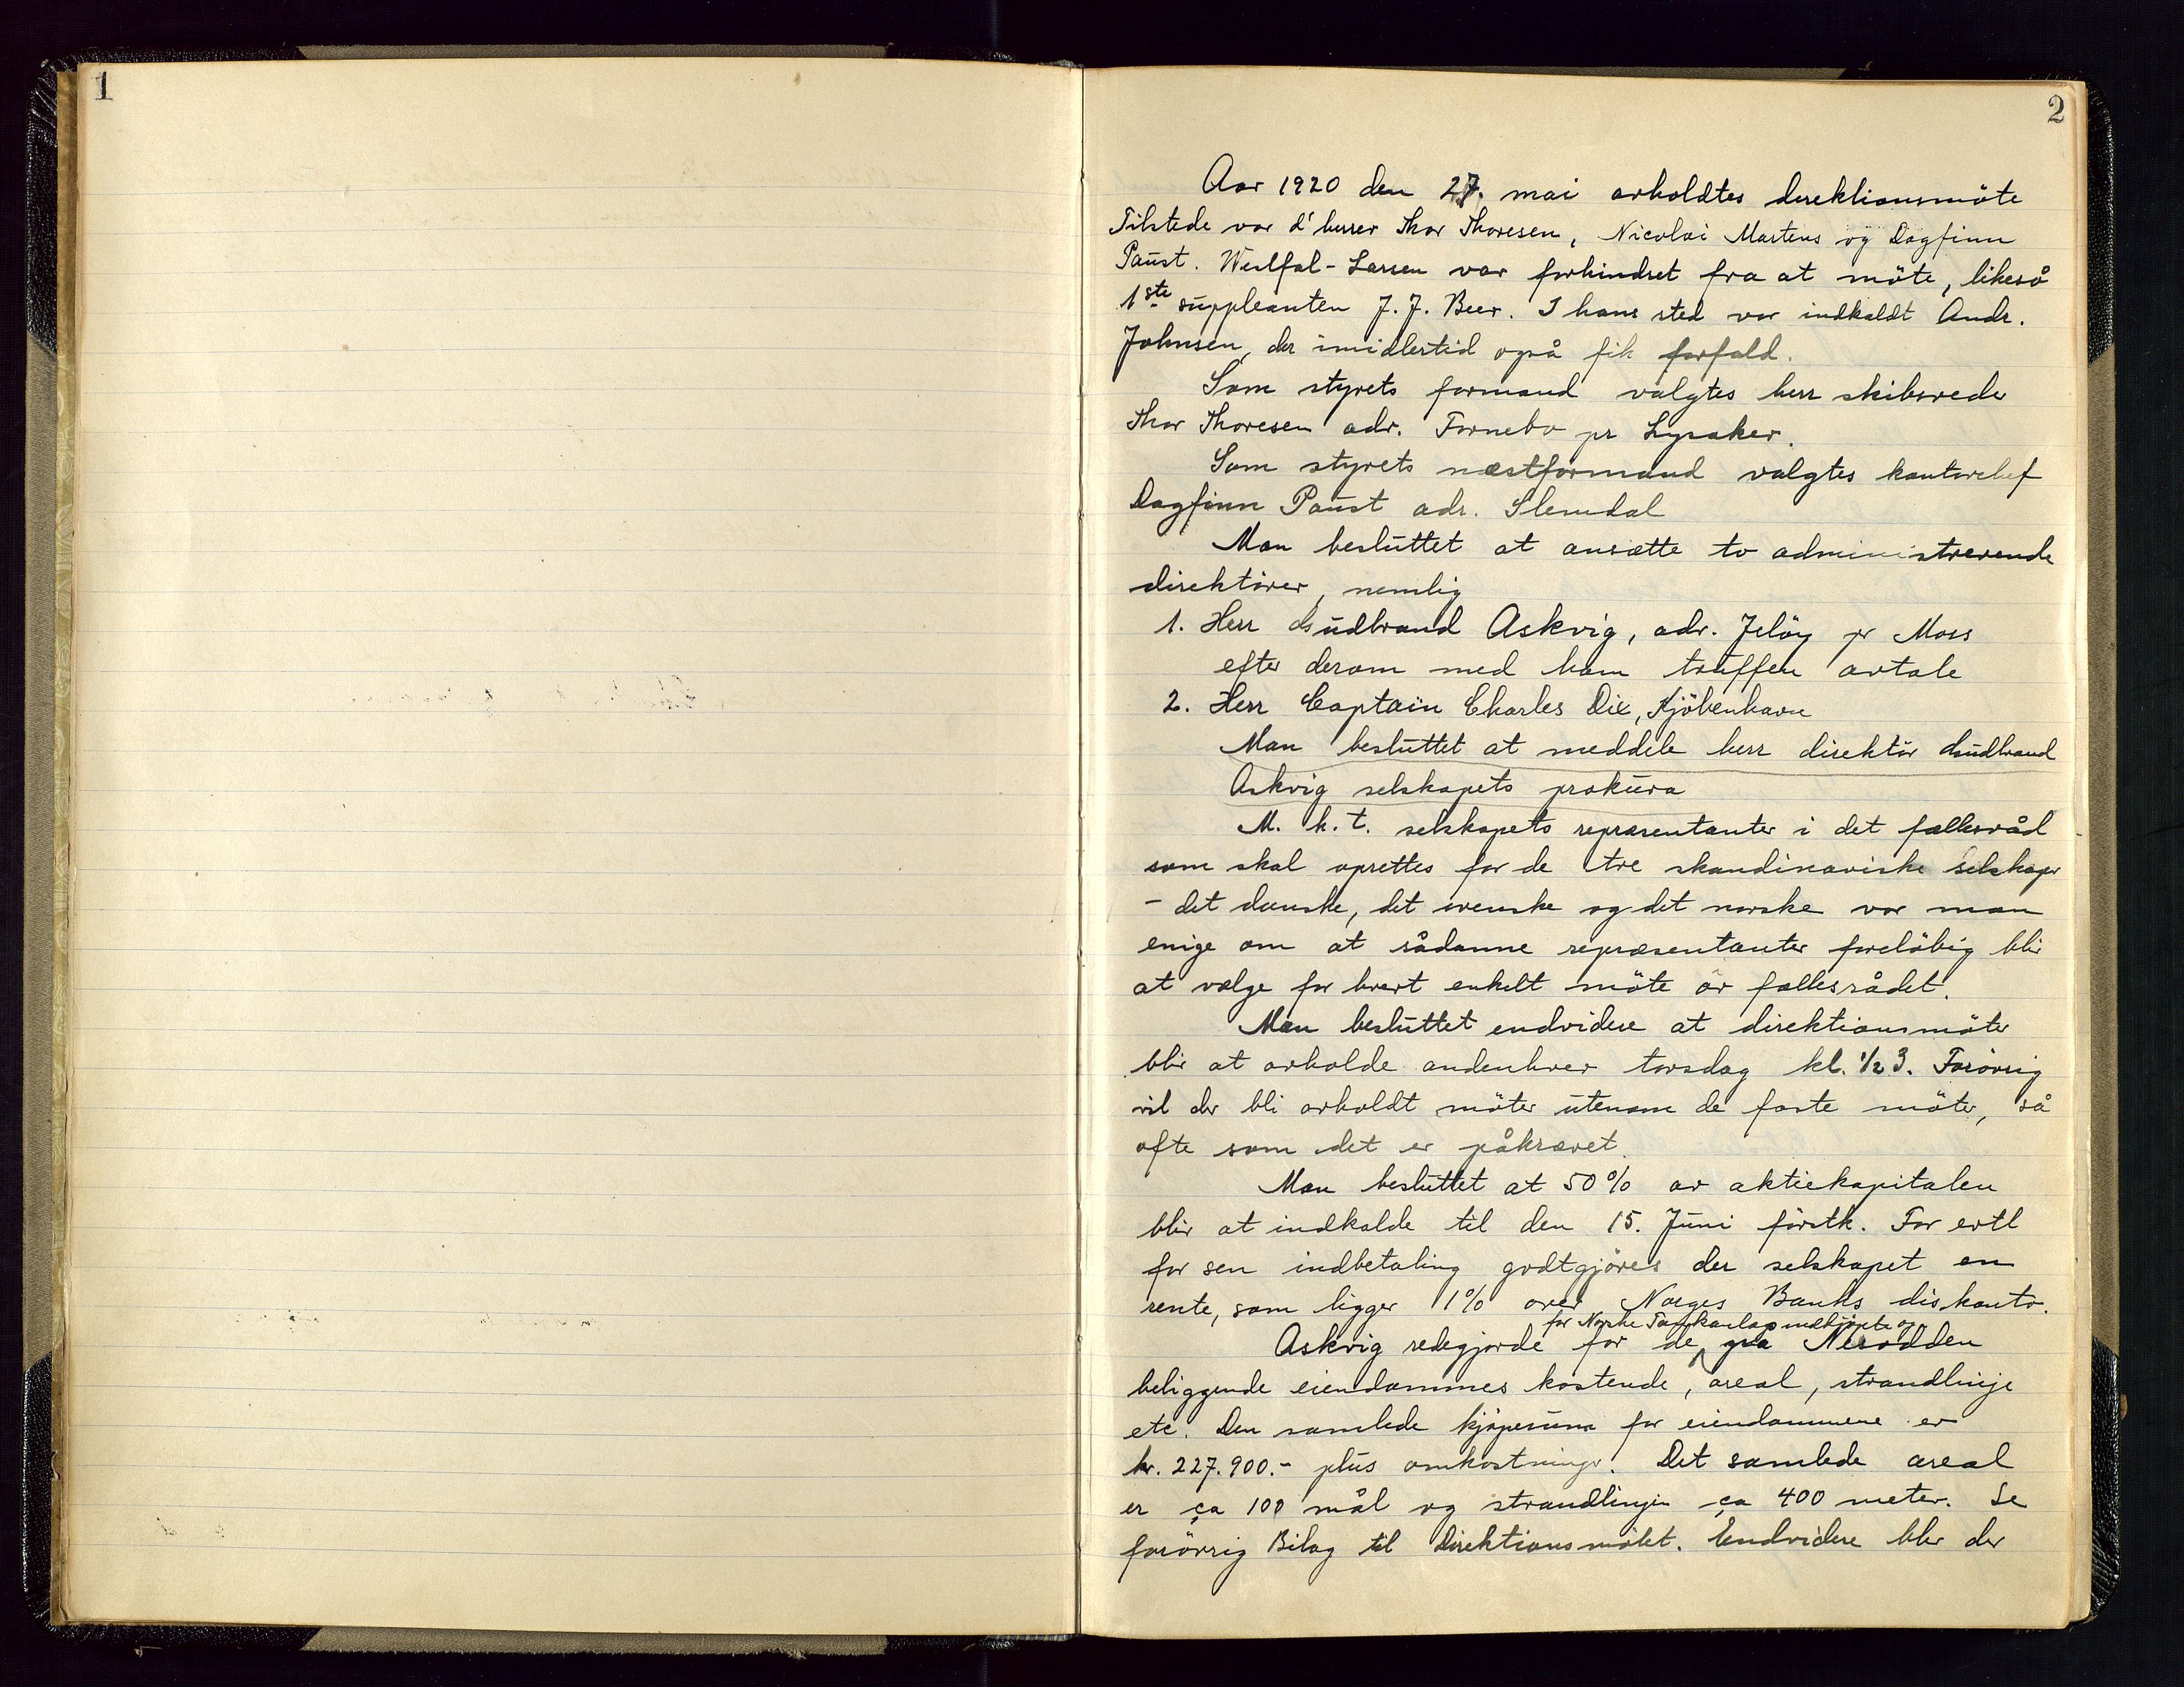 1
2
Aar 1920 den 27. mai avholdtes direktionsmöte
Tilstede var d'herrer Thor Thoresen, Nicolai Martens og Dagfinn
Paust. Westfal-Larsen var forhindret fra at möte, likeså
1ste suppleanten J. J. Beer. I hans sted var indkaldt Andr.
Johnsen, der imidlertid også fik forfald.
Som styrets formand valgtes herr skibsreder
Thor Thoresen adr. Fornebo pr Lysaker.
Som styrets næstformand valgtes kontorchef
Dagfinn Paust adr. Slemdal
Man besluttet at ansætte to administrerende
direktörer, nemlig
1. Herr Gudbrand Askvig, adr. Jelöy pr Moss
efter derom med ham truffen avtale
2. Herr Captain Charles Dix, Kjöbenhavn
Man besluttet at meddele herr direktör Gudbrand
Askvig selskapets prokura
M. h. t. selskapets repræsentanter i det fællesråd
som skal oprettes for de tre skandinaviske selskaper
- det danske, det svenske og det norske var man
enige om at sådanne repræsentanter foreløbig blir
at vælge for hvert enkelt möte av fællesrådet.
Man besluttet endvidere at direktionsmöter
blir at avholde andenhver torsdag kl. 1/2 3. Forövrig
vil der bli avholdt möter utenom de faste möter, så
ofte som det er påkrævet.
Man besluttet at 50% av aktiekapitalen
blir at indkalde til den 15. Juni förstk. For evtl
for sen indbetaling godtgjöres der selskapet en
rente, som ligger 1% over Norges Banks diskonto.
for Norske Tankanlæg indkjöpte og
Askvig redegjorde for de på Nesodden
beliggende eiendommes kostende, areal, strandlinje
etc. Den samlede kjöpesum for eiendommene er
kr. 227.900.- plus omkostninger. Det samlede areal
er ca 100 mål og strandlinjen ca 400 meter. Se
forövrig Bilag til direktionsmötet. Endvidere blev der